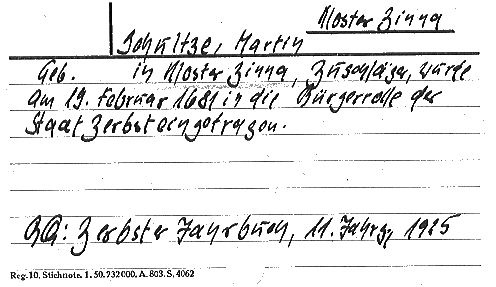 Kloster Zinna
Schultze, Martin
Geb. in Kloster Zinna, Zuschläger, wurde
am 19. Februar 1681 in die Bürgerrolle der
Staat Zerbst eingetragen.
QQ: Zerbster Jahrbuch, 11. Jahrg, 1925
Reg. 10, Stichnote. 1. 50. 732000. A. 803. S. 4062